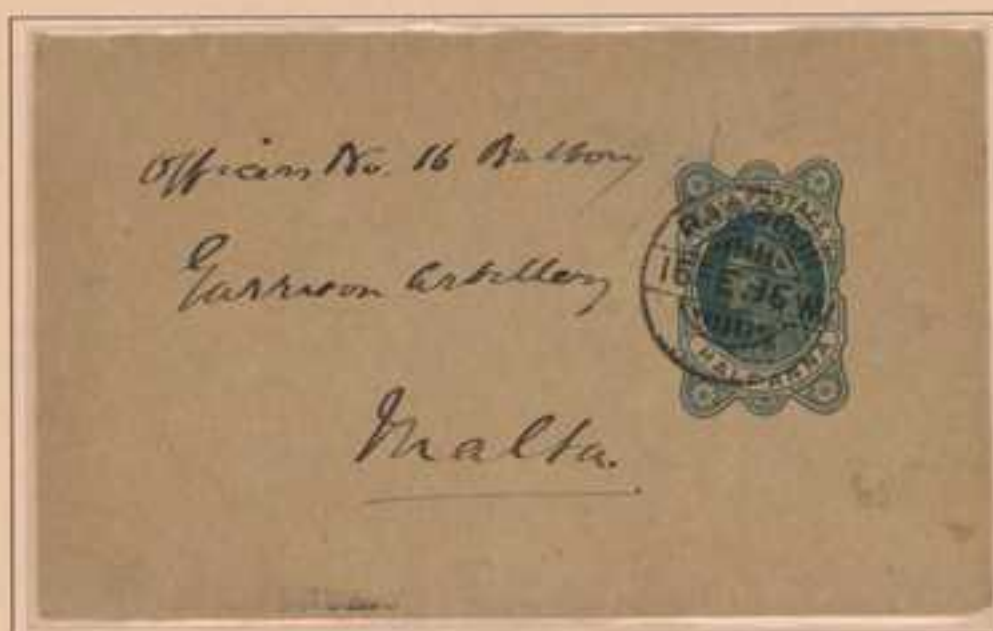 Officers No. 16 Battery
Garrison Artillery
Malta.
POSTAGE
HALF ANNA